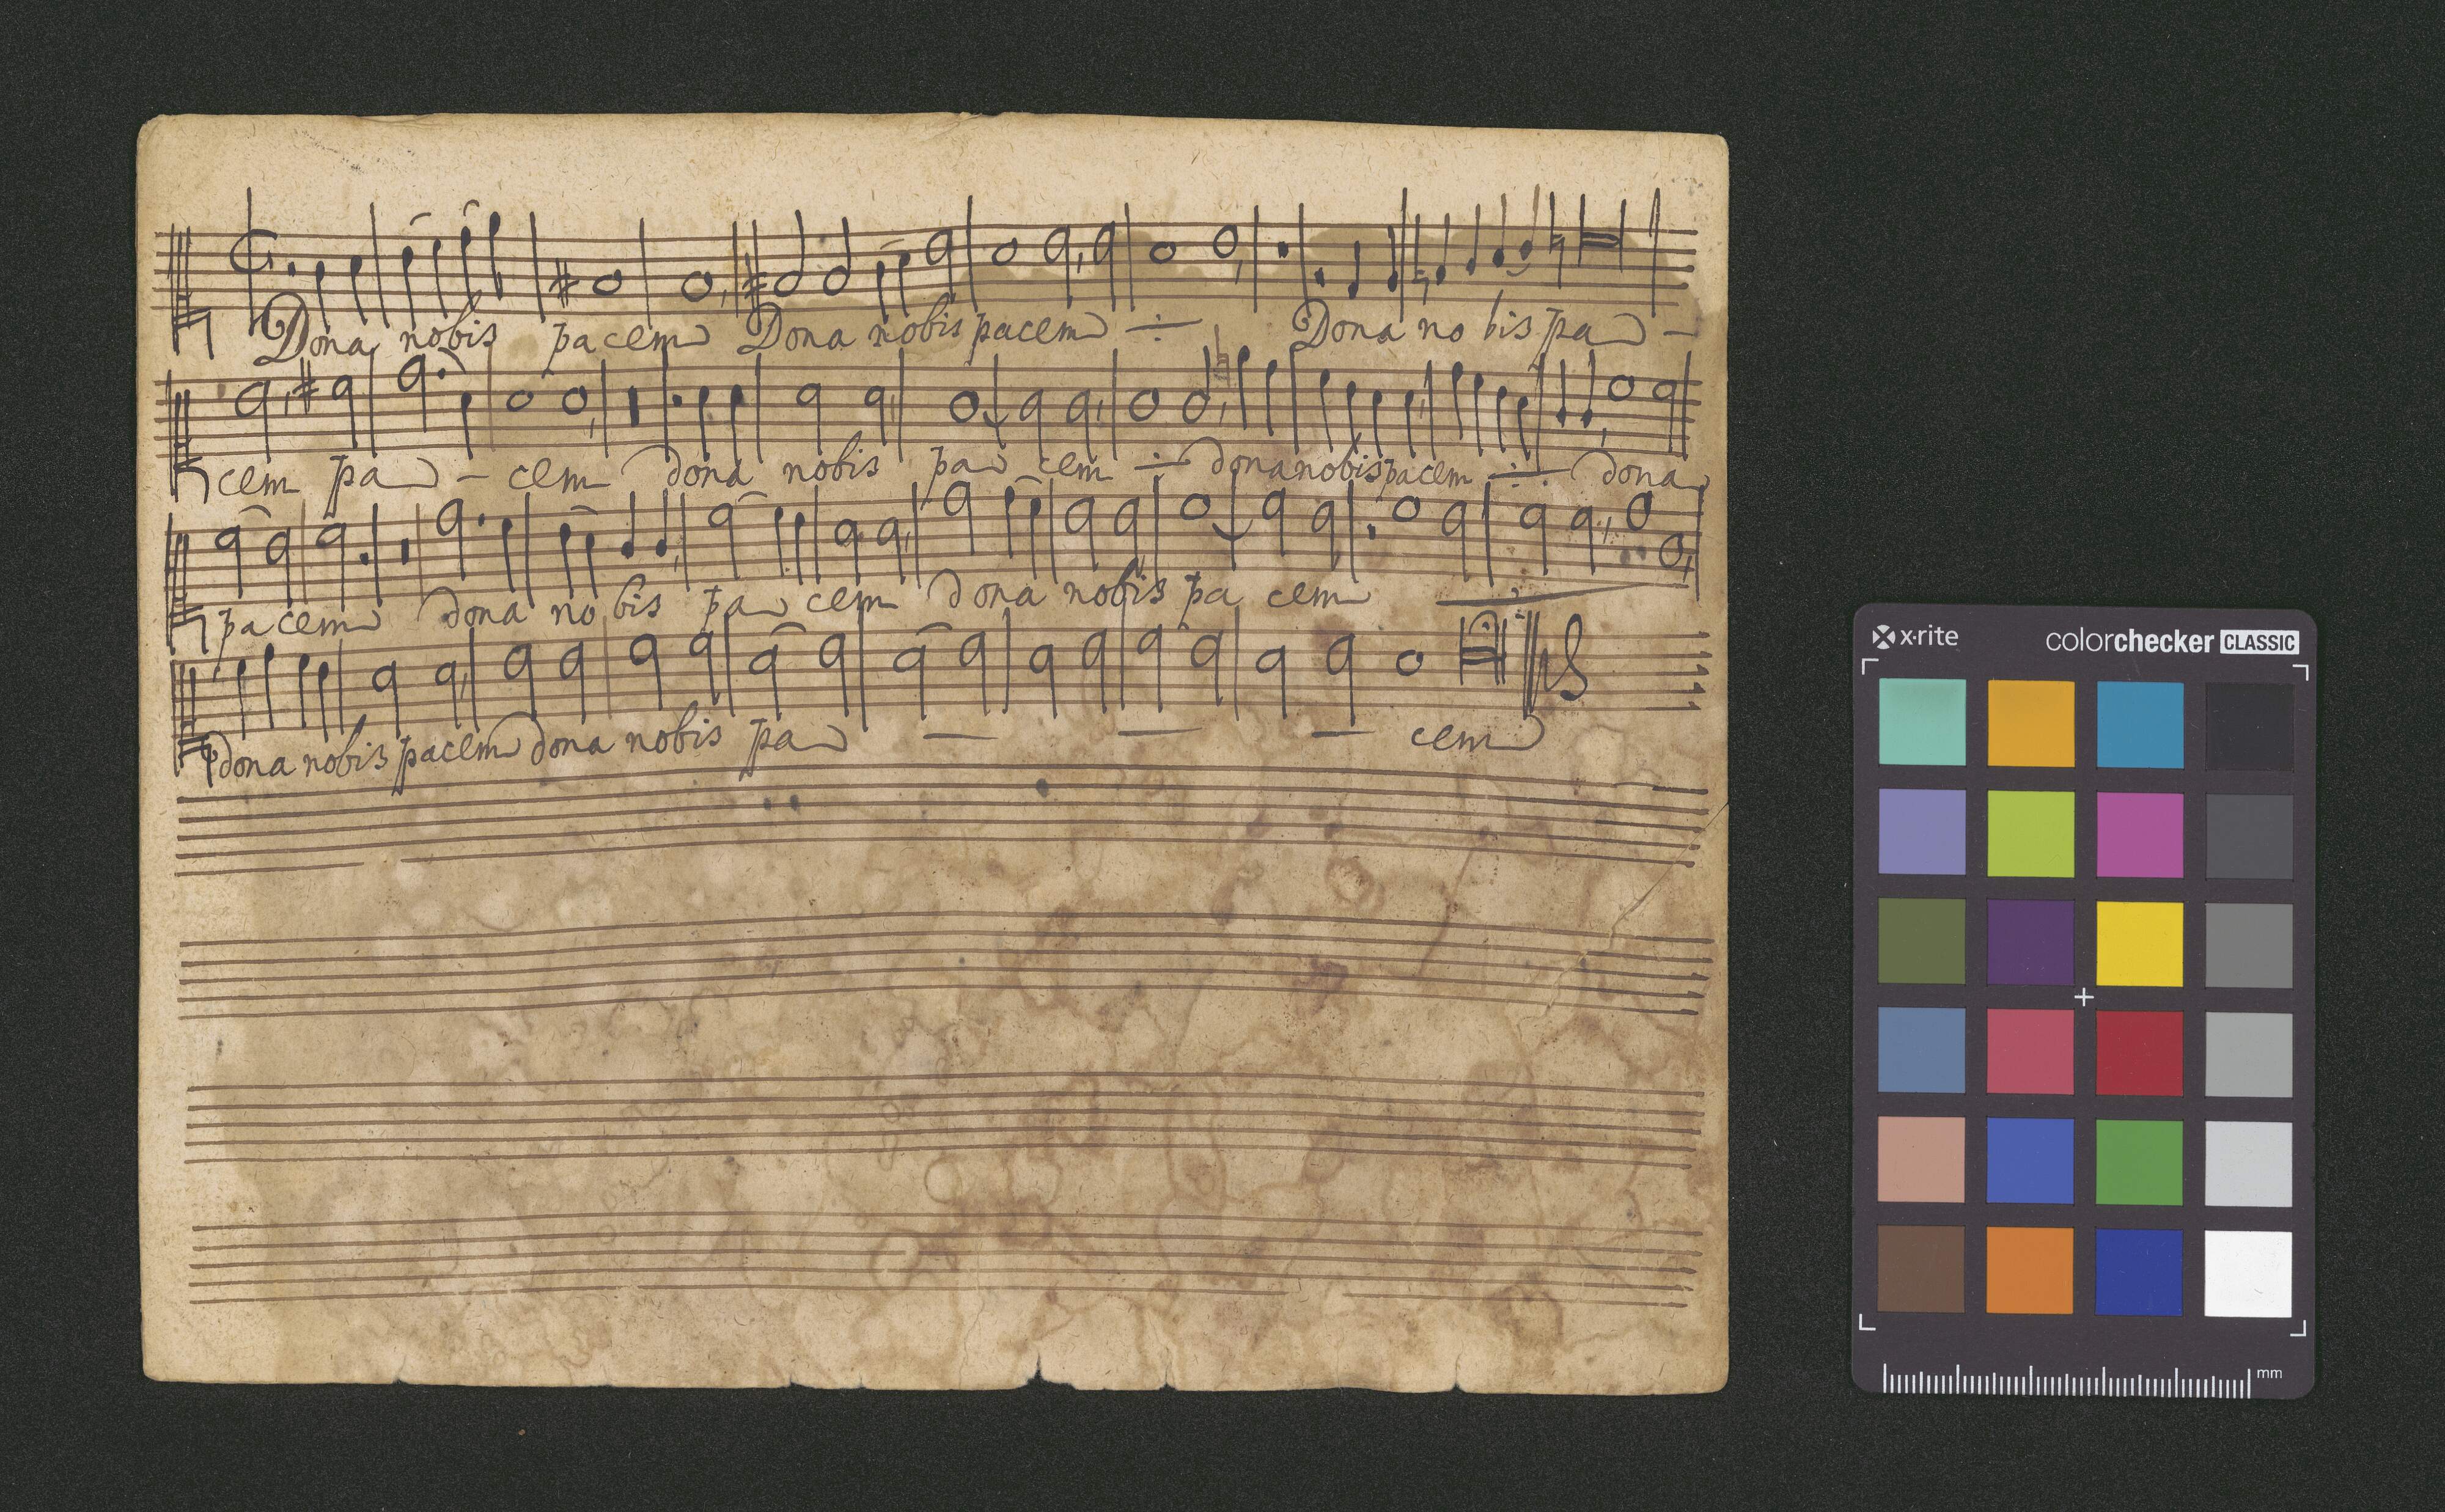 Dona nobis pacem Dona nobis pacem ÷ Dona no bis pa -
cem pa - cem dona nobis pa cem ÷ dona nobis pacem ÷ dona
pacem dona no bis pa cem dona nobis pa cem ÷
dona nobis pacem dona nobis pa — — — cem
x·rite colorchecker CLASSIC
mm